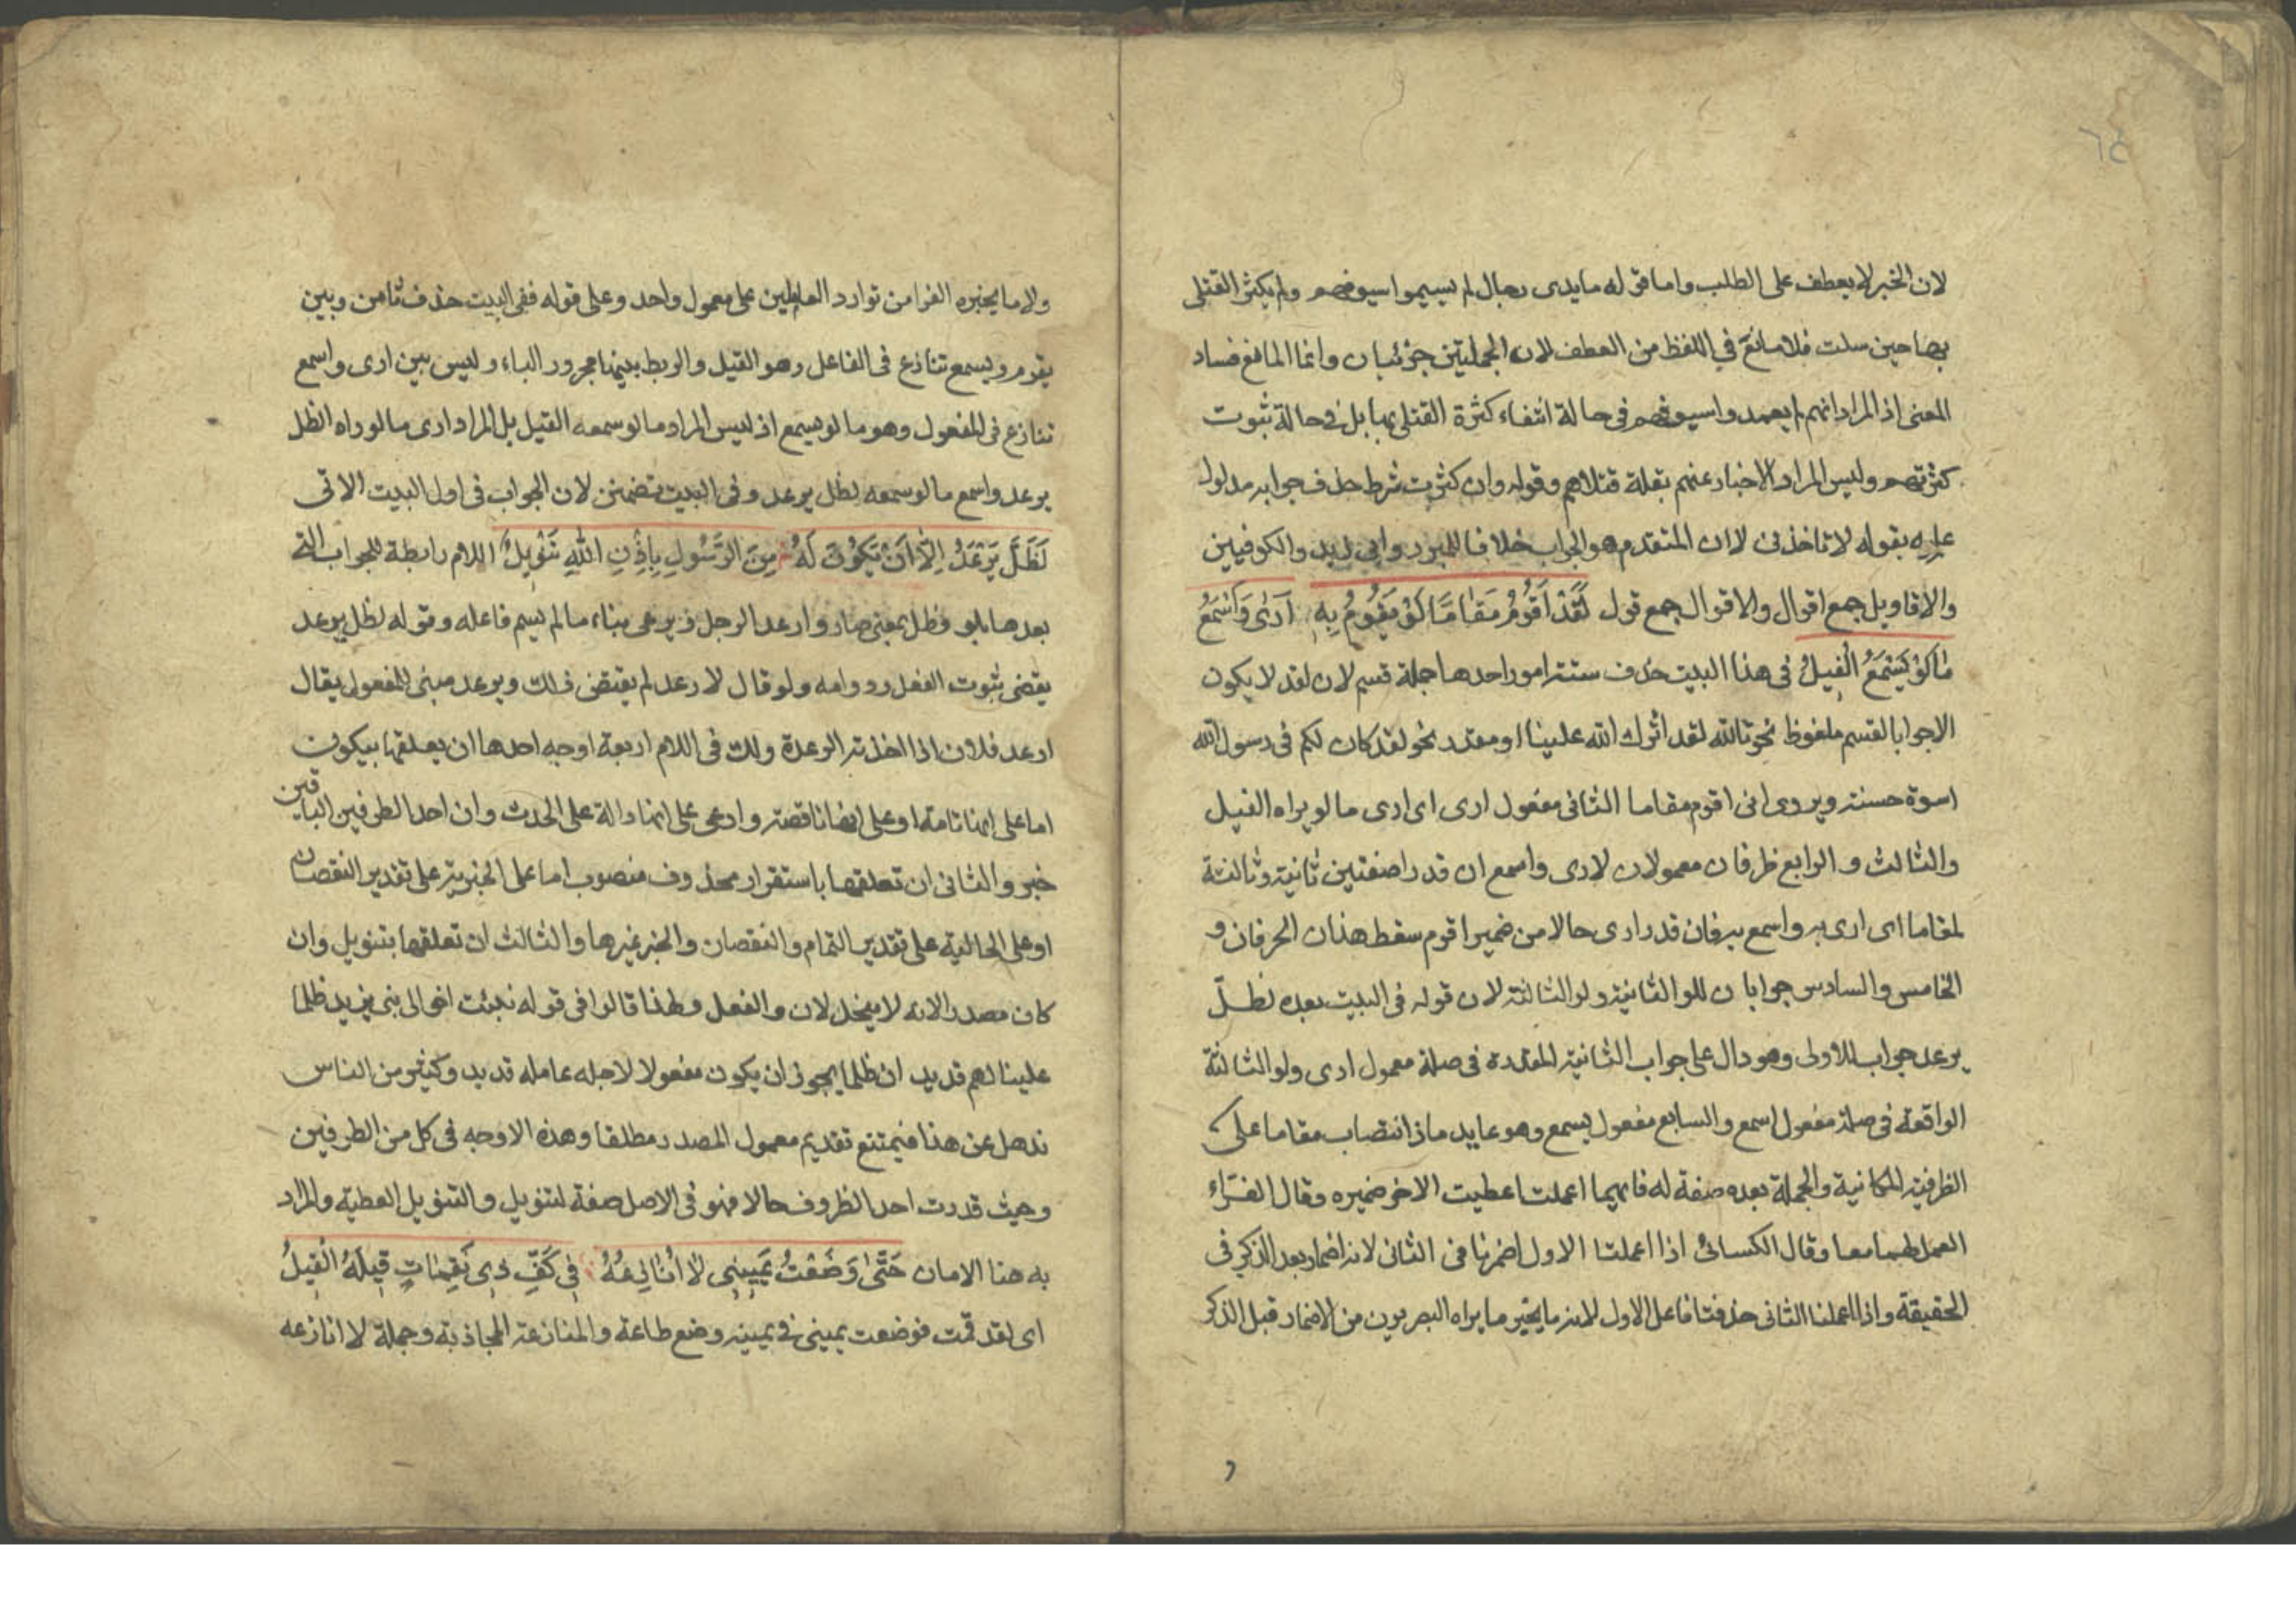 ٦٤
لان الخبر لا يعطف على الطلب واما قوله مايدى رجال لم يسيموا سيوفهم ولم يكثر القتلى
بها حين سلت فلا مانع في اللفظ من العطف لان الجملتين خبريتان وانما المانع فساد
المعنى اذ المراد انهم لم يعمدوا سيوفهم فى حالة انتفاء كثرة القتلى بها بل فى حالة ثبوت
كثرتهم وليس المراد الاخبار عنهم بقلة قتلاهم وقوله وان كثرت شرط حذف جوابه مدلول
عليه بقوله لا تاخذنى لا ان المتقدم هو الجواب خلافا للمبرد وابى زيد والكوفيين
والاقاويل جمع اقوال والاقوال جمع قول لَقَدْ اَقُومُ مَقَامًا لَوْ يَقُومُ بِهِ اَرَىٰ وَاَسْمَعُ
مَا لَوْ يَسْمَعُ الْفِيلُ فى هذا البيت حذف ستة امور احدها جملة قسم لان لقد لا يكون
الا جوابا لقسم ملفوظ نحو تالله لقد اثرك الله علينا او مقدر نحو لقد كان لكم فى رسول الله
اسوة حسنة ويروى انى اقوم مقاما الثانى مفعول ارى اى ارى ما لو يراه الفيل
والثالث والرابع ظرفان معمولان لارى واسمع ان قدرا صفتين ثانية وثالثة
لمقاما اى ارى به واسمع به فان قدر ارى حالا من ضمير اقوم سقط هذان الحرفان و
الخامس والسادس جوابان للو الثانية ولو الثالثة لان قوله فى البيت بعده لظلّ
يرعد جواب للاولى وهو دال على جواب الثانية المقدرة فى صلة معمول ارى ولو الثالثة
الواقعة فى صلة مفعول اسمع والسابع مفعول يسمع وهو عايد ما ذا انتصاب مقاما على
الظرفية المكانية والجملة بعده صفة له فايهما اعملت اعطيت الاخر ضميره وقال الفرّاء
العمل لهما معا وقال الكسائى اذا اعملنا الاول اضمرنا فى الثانى لانه اضمار بعد الذكر فى
الحقيقة واذا اعملنا الثانى حذفنا فاعل الاول لانه ما يجيز ما يراه البصريون من الاضمار قبل الذكر
و
ولا ما يجيزه الفرا من توارد العاملين على معمول واحد وعلى قوله ففى البيت حذف ثامن وبين
يقوم ويسمع تنازع فى الفاعل وهو الفيل والربط بينهما مجرور الباء وليس بين ارى واسمع
تنازع فى المفعول وهو ما لو يسمع اذ ليس المراد ما لو سمعه الفيل بل المراد ارى ما لو راه لظل
يرعد واسمع ما لو سمعه لظل يرعد وفى البيت تضمين لان الجواب فى اول البيت الاتى
لَظَلَّ يَرْعَدُ اِلَّا اَنْ يَكُونَ لَهُ مِنَ الرَّسُولِ بِاِذْنِ اللّٰهِ تَنْوِيلُ اللام رابطة للجواب التى
بعدها بلو وظل بمعنى صار وارعد الرجل زيد على بناء ما لم يسم فاعله وقوله لظل يرعد
يقضى ثبوت الفعل ودوامه ولو قال لارعد لم يقتض ذلك ويرعد مبنى للمفعول يقال
ارعد فلان اذا اخذته الرعدة ولك فى اللام اربعة اوجه احدها ان يعلقها بيكون
اما على انها تامة او على انها ناقصة وادعى على انها دالة على الحدث وان احد الطرفين الباقين
خبر والثانى ان تعلقها باستقرار محذوف منصوب اما على الخبرية على تقدير النقصان
او على الحالية على تقدير التمام والنقصان والخبر غيرها والثالث ان تعلقها بتنويل وان
كان مصدرا لانه لا ينحل لان والفعل ولهذا قالوا فى قوله نبئت اخوالى بنى يزيد ظلما
علينا لهم فديد ان ظلما يجوز ان يكون مفعولا لاجله عامله فديد وكثير من الناس
نذهل عن هذا فيمتنع تقديم معمول المصدر مطلقا وهذه الاوجه فى كل من الطرفين
وحيث قدرت احد الظروف حالا فهو فى الاصل صفة لتنويل والتنويل العطية والمراد
به هنا الامان حَتَّىٰ وَضَعْتُ يَمِينِى لَا اُنَازِعُهُ فِى كَفِّ ذِى نَقِمَاتٍ قِيلُهُ الْقِيلُ
اى لقد قمت فوضعت يمينى فى يمينه وضع طاعة والمنازعة المجاذبة وجملة لا انازعه